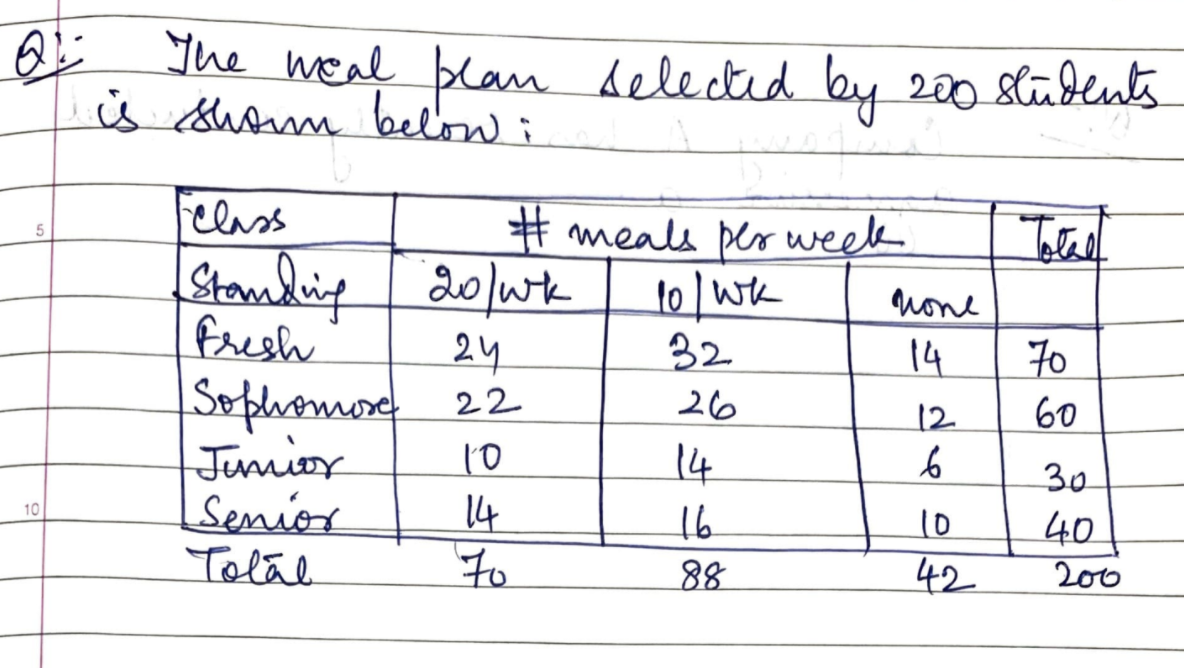 Q:- The meal plan selected by 200 students
is shown below:
Class # meals per week Total
Standing 20/wk 10/wk none
Fresh 24 32 14 70
Sophomore 22 26 12 60
Junior 10 14 6 30
Senior 14 16 10 40
Total 70 88 42 200
5
10